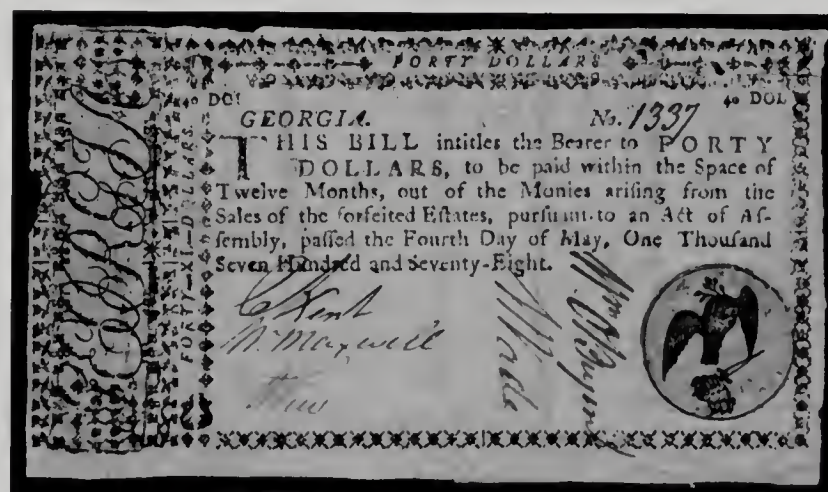 FORTY DOLLARS
40 DOL
GEORGIA. No. 1337
THIS BILL intitles the Bearer to FORTY
DOLLARS, to be paid within the Space of
Twelve Months, out of the Monies ariſing from the
Sales of the forfeited Eſtates, purſuant to an Act of Aſ-
ſembly, paſſed the Fourth Day of May, One Thouſand
Seven Hundred and Seventy-Eight.
C Kent
Wm Maxwell
Wade
FORTY DOLLARS.
GEORGIA